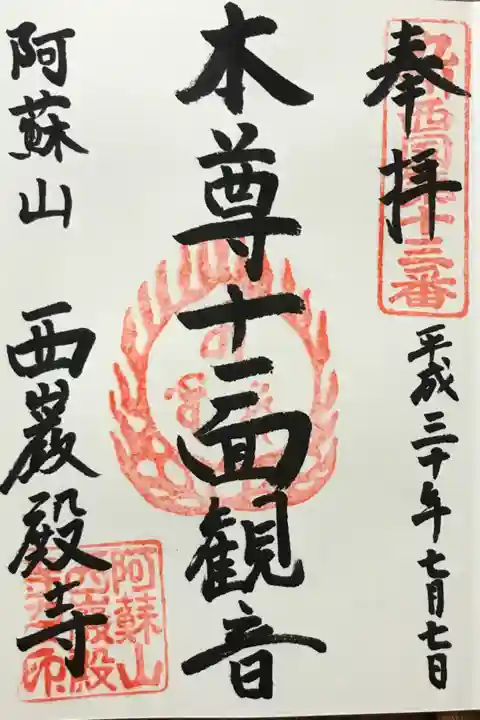 奉拝
九州西国第十三番
平成三十年七月七日
本尊十一面観音
阿蘇山 西巌殿寺
阿蘇山
西巌殿